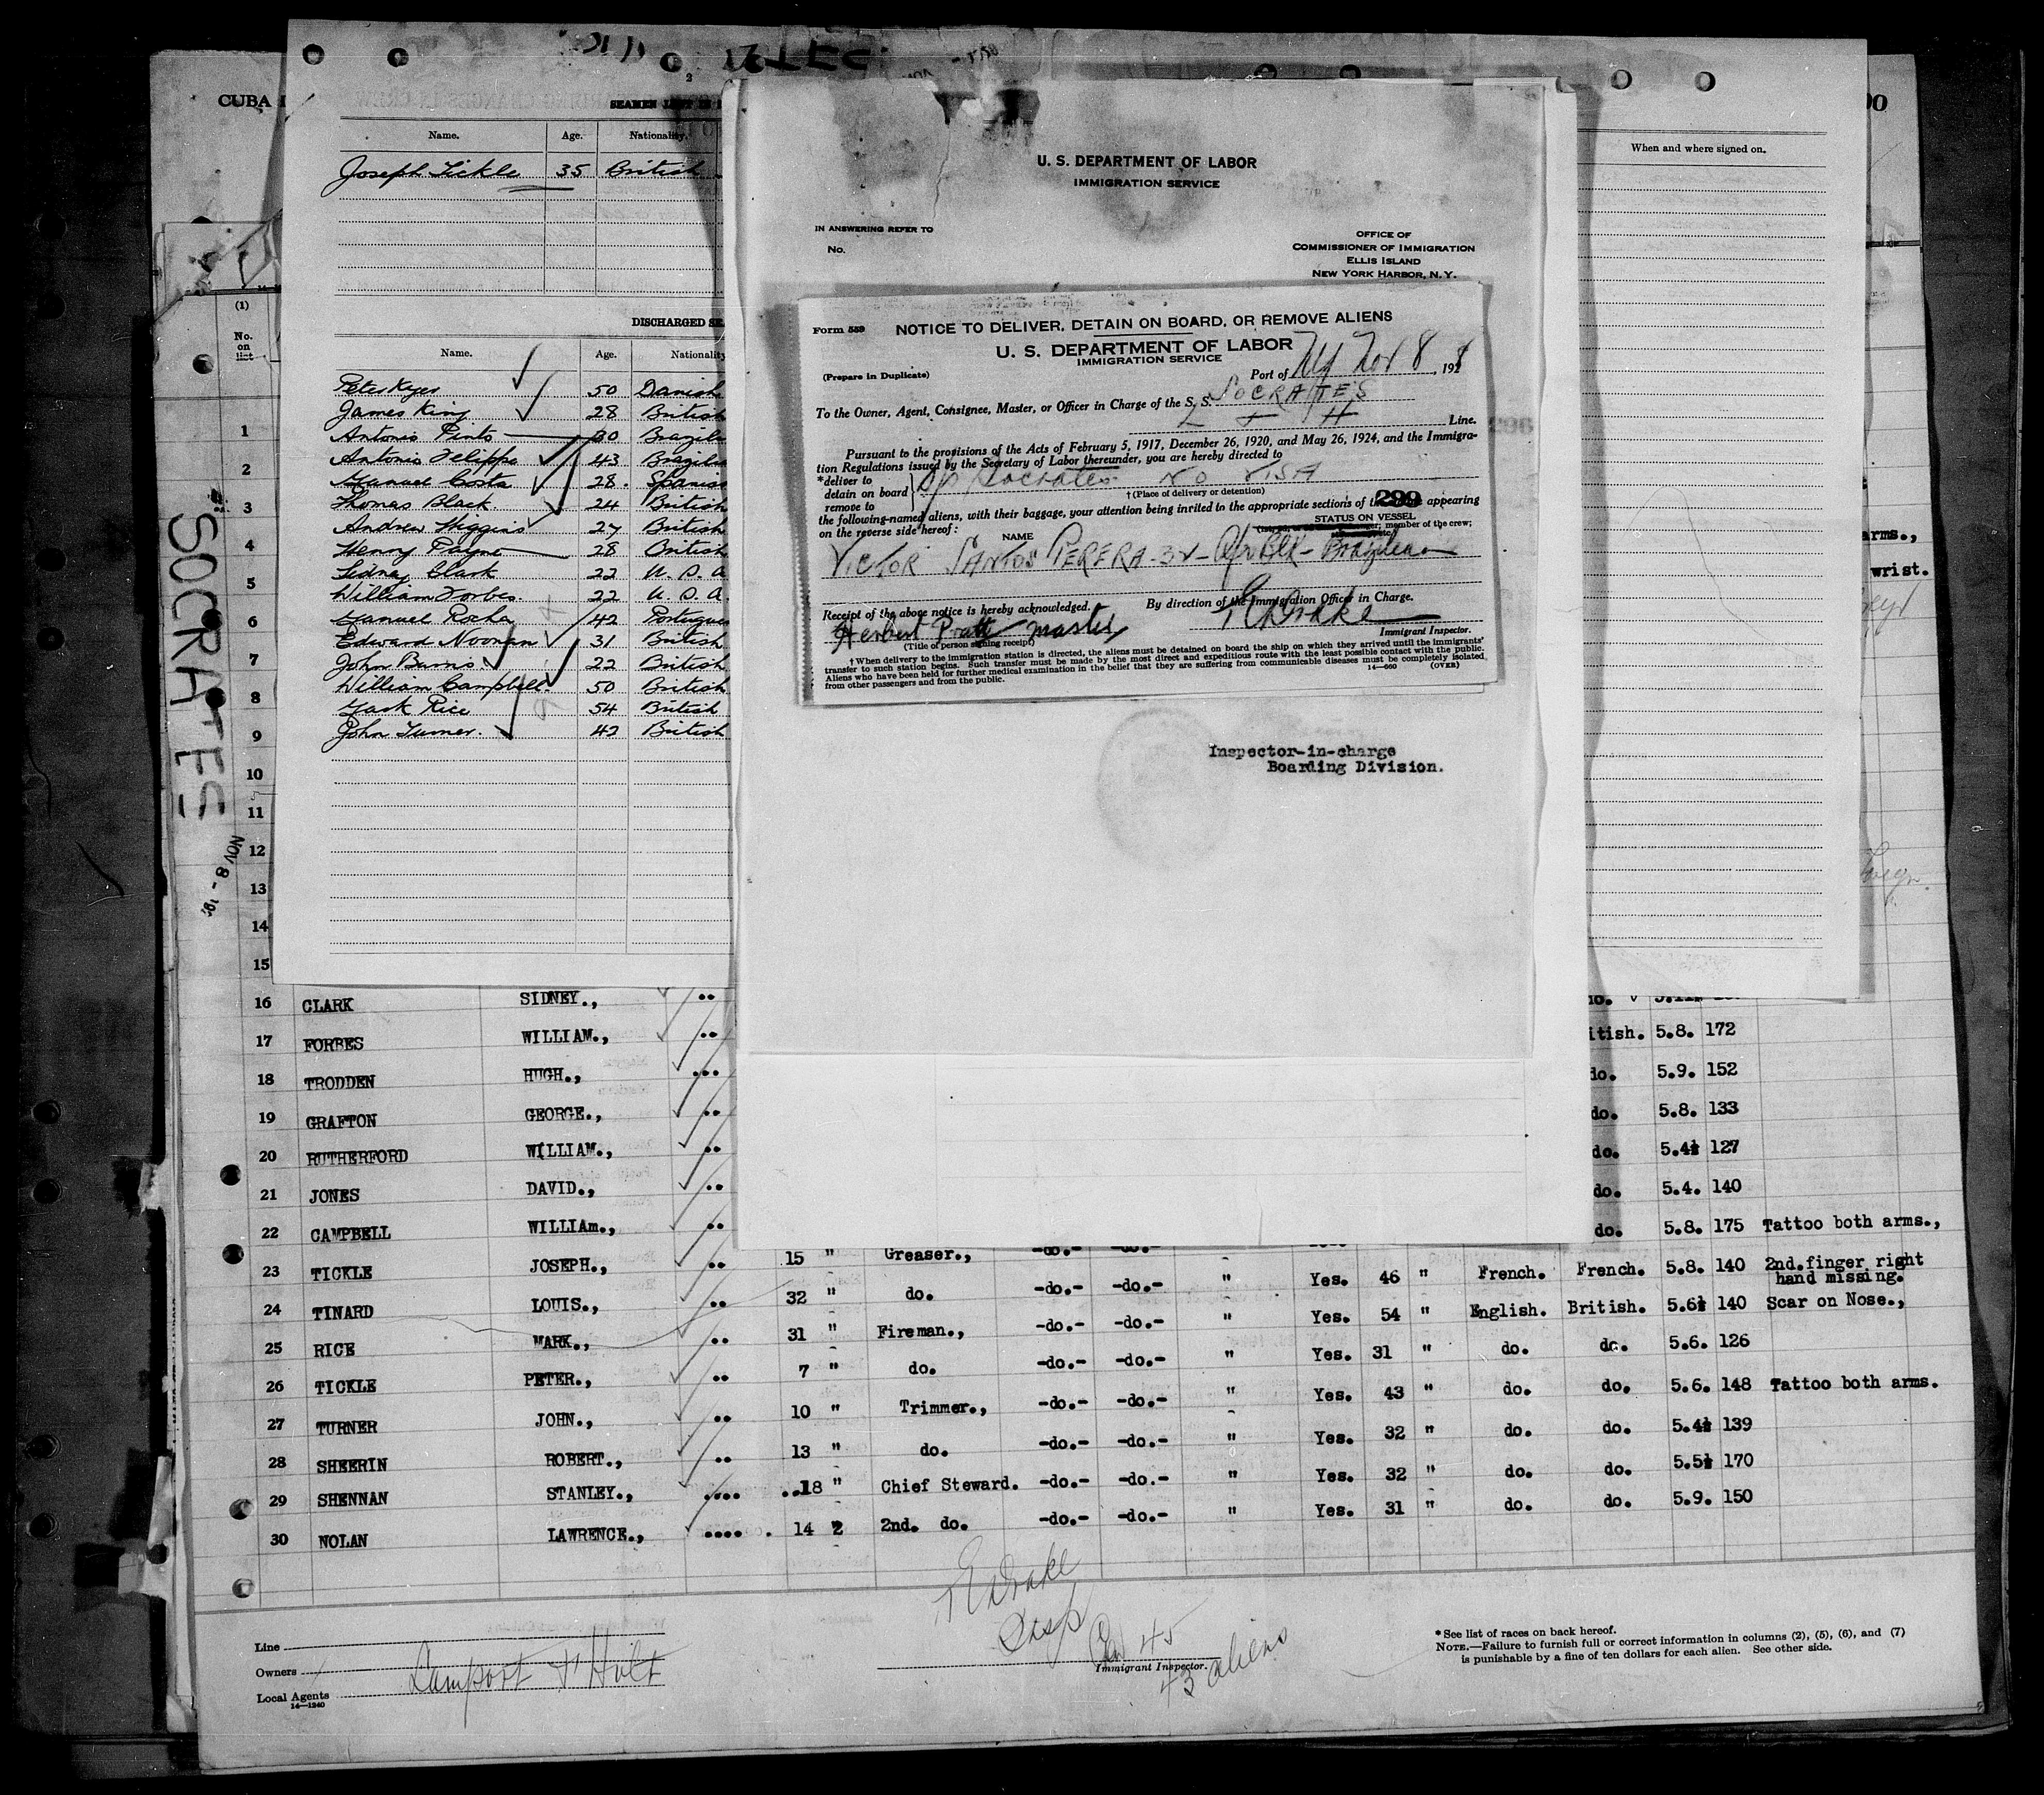 CUBA
SEAMEN LEFT IN
Name. Age. Nationality.
Joseph Tickle 35 British
When and where signed on.
DISCHARGED SE
Name. Age. Nationality
Peter Kyer 50 Danish
James King 28 British
Antonio Pinto 30 Brazilia
Antonio Felippe 43 Brazilia
Manuel Costa 28. Spanish
Thomas Black. 24 British
Andrew Higgins 27 British
Henry Payne 28 British
Sidney Clark 22 U.S.A.
William Forbes. 22 U.S.A.
Manuel Rocha 42 Portugues
Edward Noonan 31 British
John Burns 22 British
William Campbell. 50 British
Mark Rice 54 British
John Turner. 42 British
U. S. DEPARTMENT OF LABOR
IMMIGRATION SERVICE
IN ANSWERING REFER TO
No.
OFFICE OF
COMMISSIONER OF IMMIGRATION
ELLIS ISLAND
NEW YORK HARBOR, N. Y.
Form 559 NOTICE TO DELIVER, DETAIN ON BOARD, OR REMOVE ALIENS
U. S. DEPARTMENT OF LABOR
IMMIGRATION SERVICE
(Prepare in Duplicate)
Port of NY Nov 8, 1928
To the Owner, Agent, Consignee, Master, or Officer in Charge of the S. S. SOCRATES
L + H Line.
Pursuant to the provisions of the Acts of February 5, 1917, December 26, 1920, and May 26, 1924, and the Immigra-
tion Regulations issued by the Secretary of Labor thereunder, you are hereby directed to
*deliver to
detain on board
remove to
S/S Socrates NO VISA
†(Place of delivery or detention)
299
the following-named aliens, with their baggage, your attention being invited to the appropriate sections of the appearing
on the reverse side hereof:
STATUS ON VESSEL
member of the crew;
NAME
VICTOR SANTOS PERERA - 32 - Afr Blk - Brazilean
Receipt of the above notice is hereby acknowledged. By direction of the Immigration Officer in Charge.
Herbert Pratt master
(Title of person signing receipt)
Immigrant Inspector.
†When delivery to the immigration station is directed, the aliens must be detained on board the ship on which they arrived until the immigrants'
transfer to such station begins. Such transfer must be made by the most direct and expeditious route with the least possible contact with the public.
Aliens who have been held for further medical examination in the belief that they are suffering from communicable diseases must be completely isolated
from other passengers and from the public.
14—660 (OVER)
296
Inspector-in-charge
Boarding Division.
SOCRATES
NOV 8 - 19
(1)
No. on list
1
2
3
4
5
6
7
8
9
10
11
12
13
14
15
arms.,
wrist.
16 CLARK SIDNEY.,
17 FORBES WILLIAM., itish. 5.8. 172
18 TRODDEN HUGH., do. 5.9. 152
19 GRAFTON GEORGE., do. 5.8. 133
20 RUTHERFORD WILLIAM., do. 5.4½ 127
21 JONES DAVID., do. 5.4. 140
22 CAMPBELL WILLIAm., do. 5.8. 175 Tattoo both arms.,
23 TICKLE JOSEPH., 15 " Greaser., -do.- -do.-
24 TINARD LOUIS., 32 " do. -do.- -do.- " Yes. 46 " French. French. 5.8. 140 2nd.finger right hand missing.
25 RICE MARK., 31 " Fireman., -do.- -do.- " Yes. 54 " English. British. 5.6½ 140 Scar on Nose.,
26 TICKLE PETER., 7 " do. -do.- -do.- " Yes. 31 " do. do. 5.6. 126
27 TURNER JOHN., 10 " Trimmer., -do.- -do.- " Yes. 43 " do. do. 5.6. 148 Tattoo both arms.
28 SHEERIN ROBERT., 13 " do. -do.- -do.- " Yes. 32 " do. do. 5.4½ 139
29 SHENNAN STANLEY., 18 " Chief Steward. -do.- -do.- " Yes. 32 " do. do. 5.5½ 170
30 NOLAN LAWRENCE., 14 2 2nd. do. -do.- -do.- " Yes. 31 " do. do. 5.9. 150
Line
Owners
Local Agents
14—1240
Lamport & Holt
Drake
Insp
45
43 aliens
Immigrant Inspector.
* See list of races on back hereof.
NOTE.—Failure to furnish full or correct information in columns (2), (5), (6), and (7)
is punishable by a fine of ten dollars for each alien. See other side.